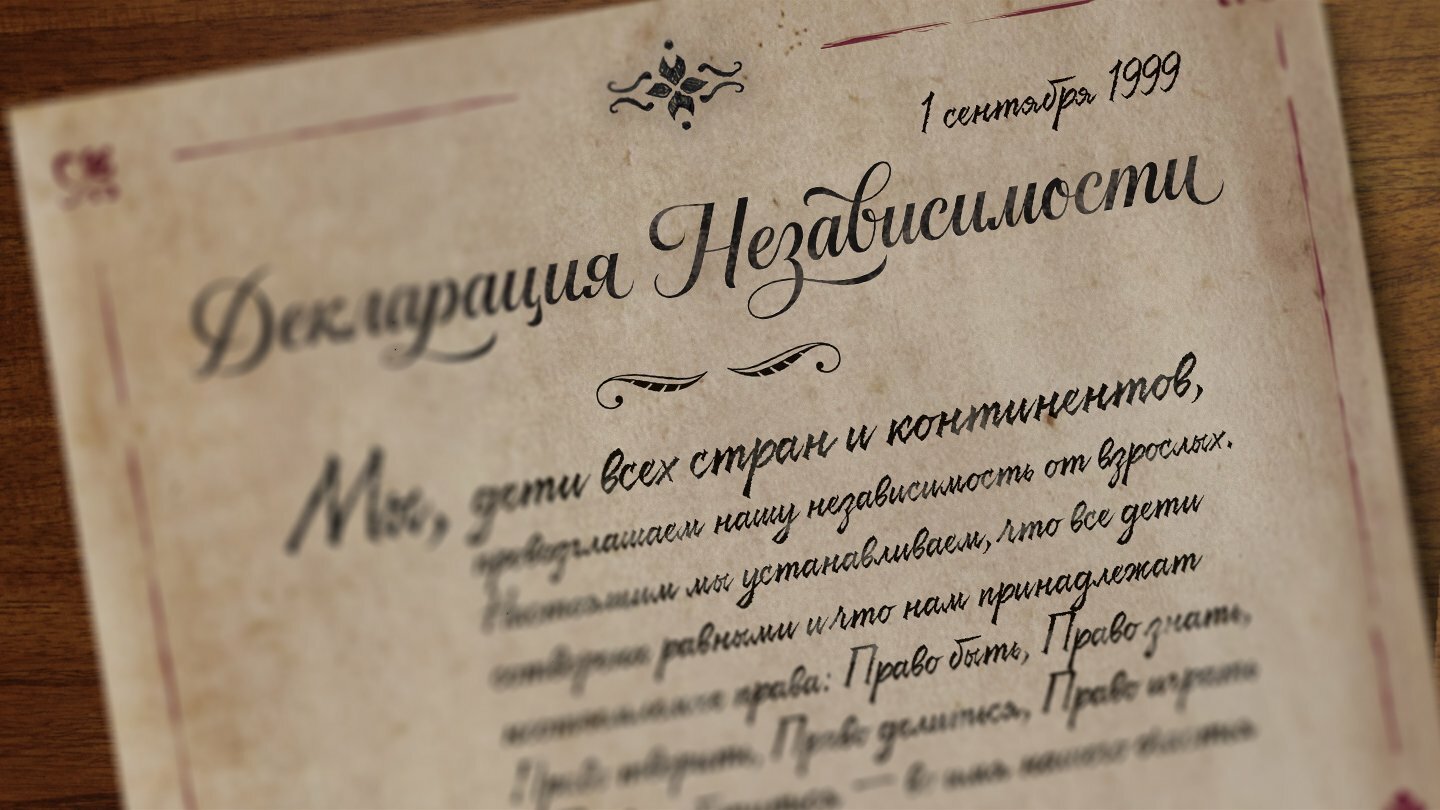 1 сентября 1999
Декларация Независимости
Мы, дети всех стран и континентов,
провозглашаем нашу независимость от взрослых.
Настоящим мы устанавливаем, что все дети
сотворены равными и что нам принадлежат
права: Право быть, Право знать,
Право творить, Право делиться, Право играть